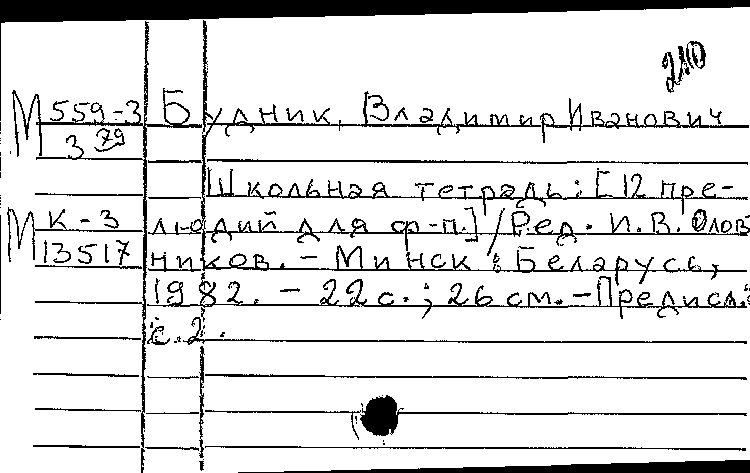 210
М 559-3 Будник, Владимир Иванович
3 79
Школьная тетрадь: [12 пре-
М К-3 людий для ф-п.] / Ред. И.В. Олов
13517 ников. - Минск : Беларусь,
1982. - 22 с. ; 26 см. - Предисл.:
с. 2.